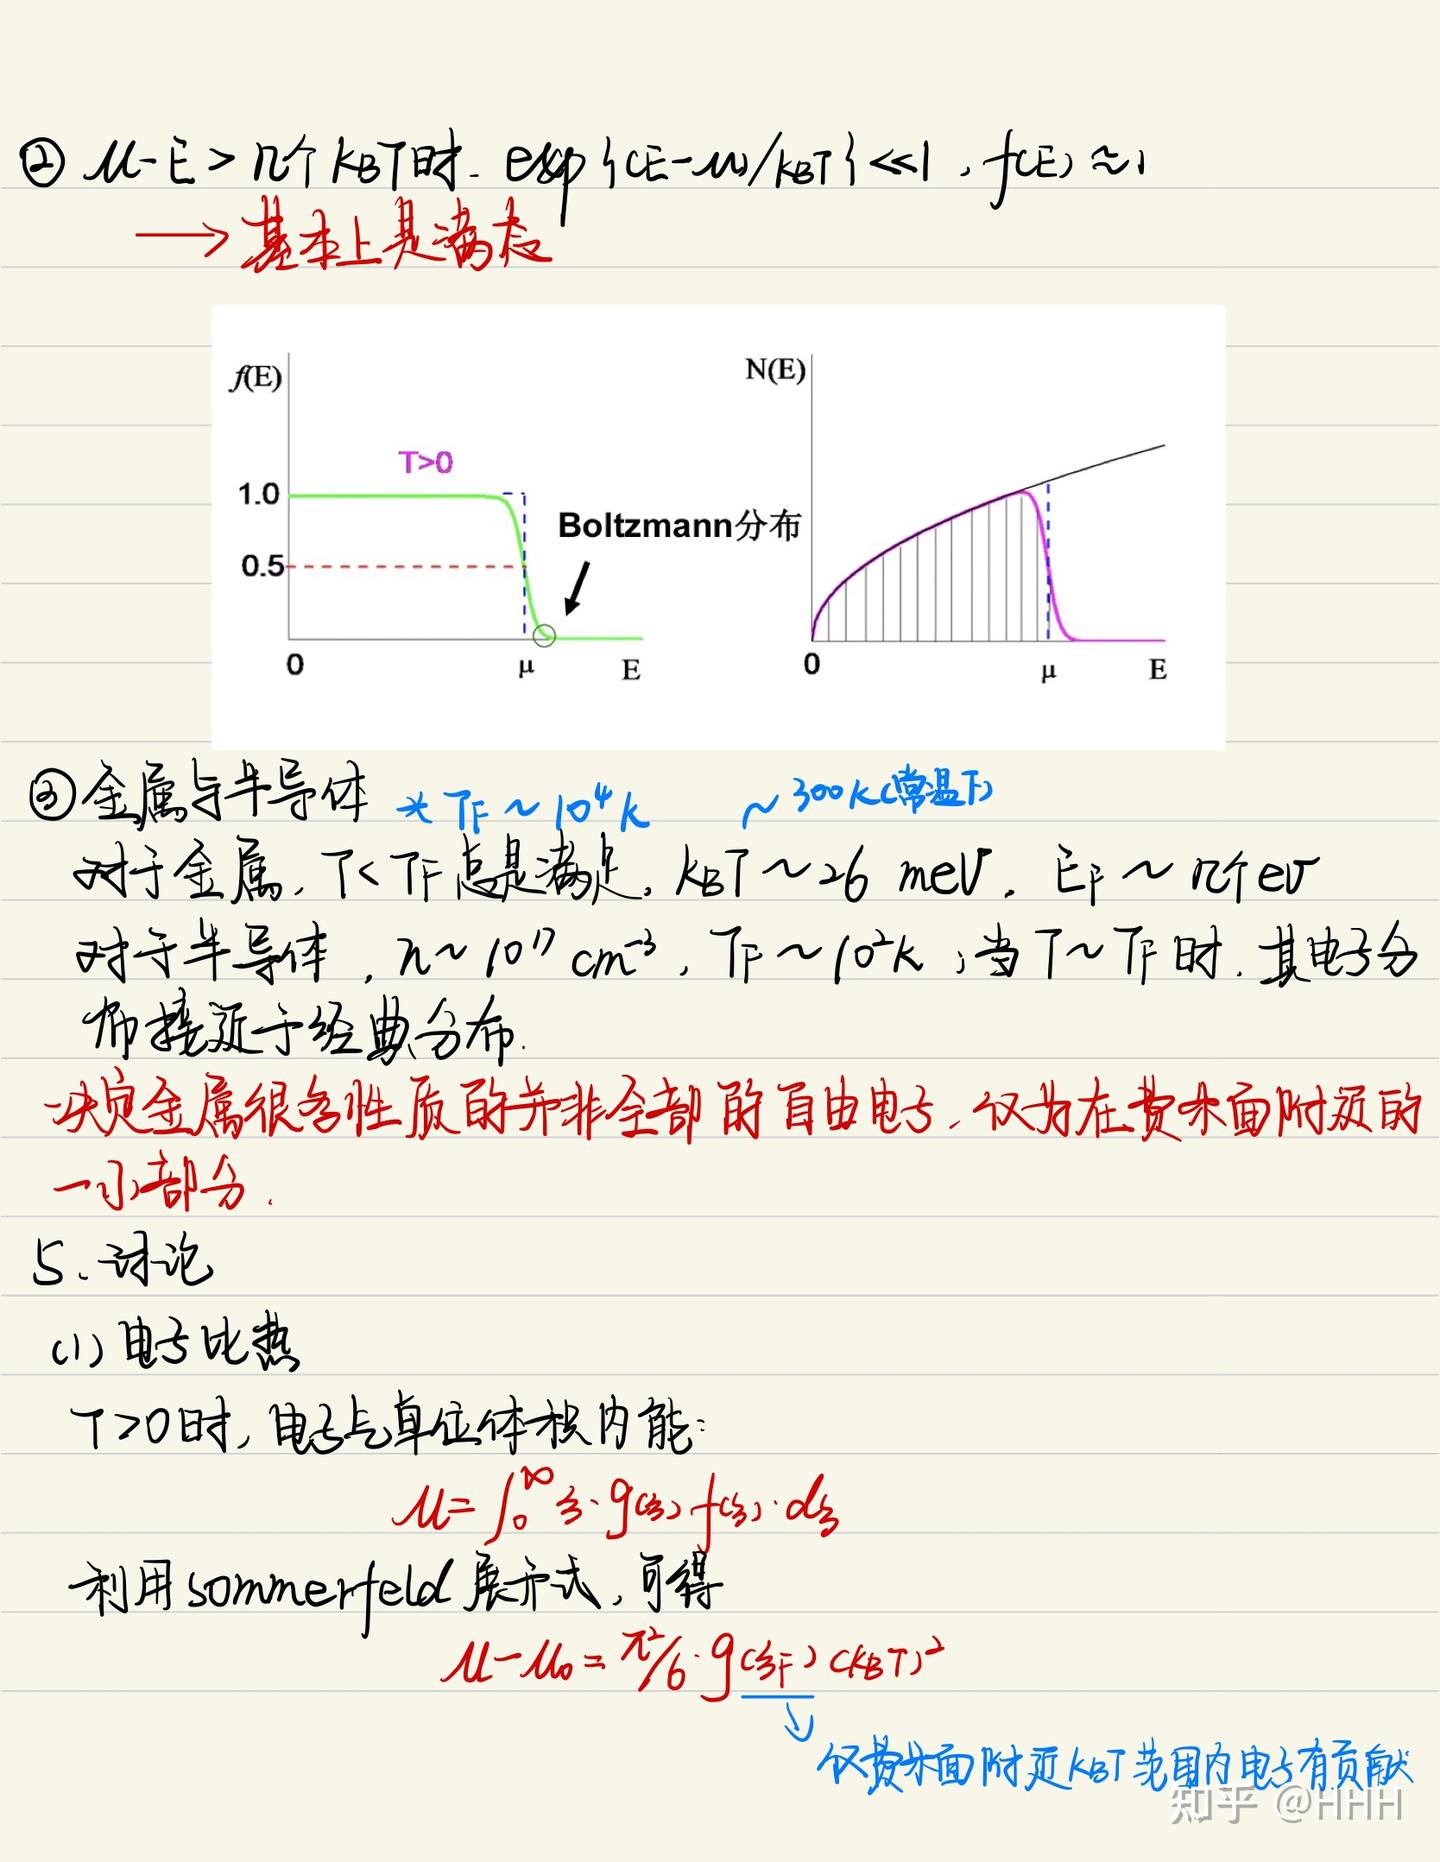 ② μ-E > 几个 kBT时. exp{(E-μ)/kBT} ≪1, f(E)≈1
→ 基本上是满态
f(E)
N(E)
T>0
1.0
Boltzmann分布
0.5
0
μ
E
0
μ
E
③ 金属与半导体 * TF ~ 10⁴K ~ 300K(常温下)
对于金属, T< TF 总是满足, kBT ~ 26 meV. EF ~ 几个eV
对于半导体, n~10¹⁷ cm⁻³, TF ~10²K, 当T~TF时. 其电子分
布接近于经典分布.
决定金属很多性质的并非全部的自由电子, 仅为在费米面附近的
一小部分.
5. 讨论
(1) 电子比热
T>0时, 电子气单位体积内能:
μ= ∫₀^∞ ε·g(ε) f(ε)·dε
利用sommerfeld 展开式, 可得
μ-μ₀ = π²/6·g(εF)(kBT)²
↓
仅费米面附近kBT范围内电子有贡献
知乎 @HHH